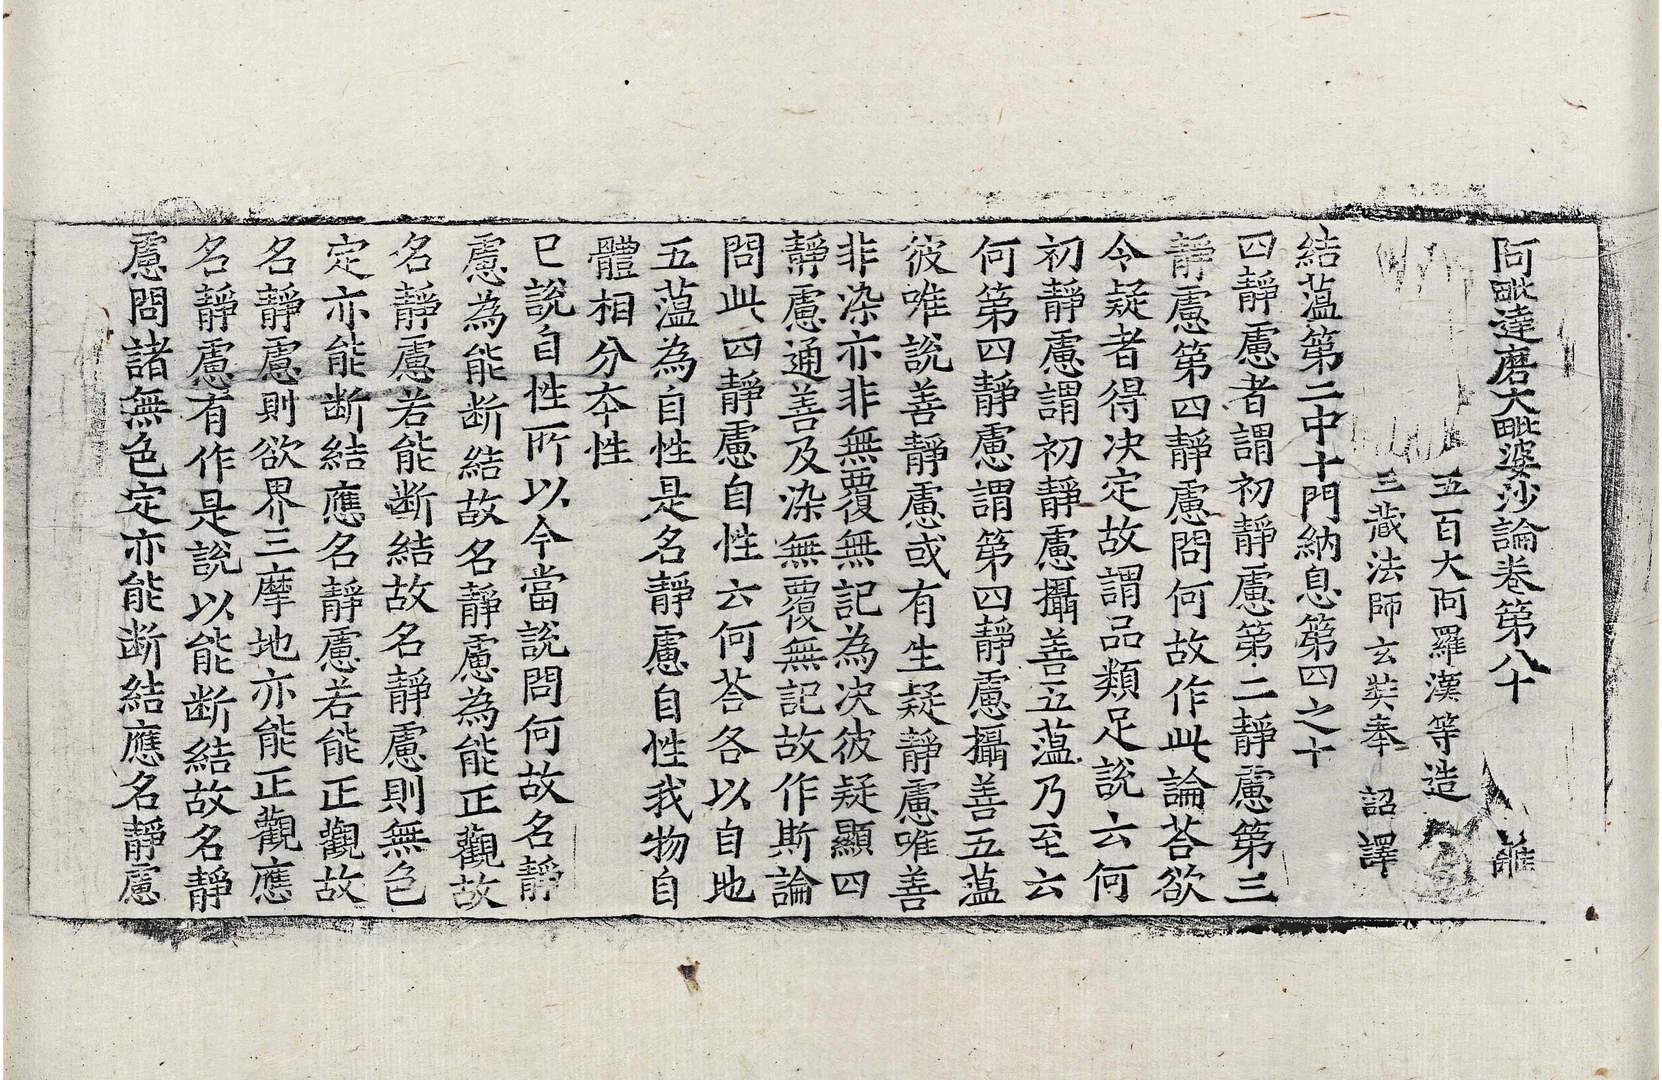 阿毗達磨大毗婆沙論卷第八十 雖
五百大阿羅漢等造
三藏法師玄奘奉 詔譯
結蘊第二中十門納息第四之十
四靜慮者謂初靜慮第二靜慮第三
靜慮第四靜慮問何故作此論荅欲
令疑者得决定故謂品類足說云何
初靜慮謂初靜慮攝善五蘊乃至云
何第四靜慮謂第四靜慮攝善五蘊
彼唯說善靜慮或有生疑靜慮唯善
非染亦非無覆無記為决彼疑顯四
靜慮通善及染無覆無記故作斯論
問此四靜慮自性云何荅各以自地
五蘊為自性是名靜慮自性我物自
體相分夲性
已說自性所以今當說問何故名靜
慮為能断結故名靜慮為能正觀故
名靜慮若能断結故名靜慮則無色
定亦能断結應名靜慮若能正觀故
名靜慮則欲界三摩地亦能正觀應
名靜慮有作是說以能断結故名靜
慮問諸無色定亦能断結應名靜慮